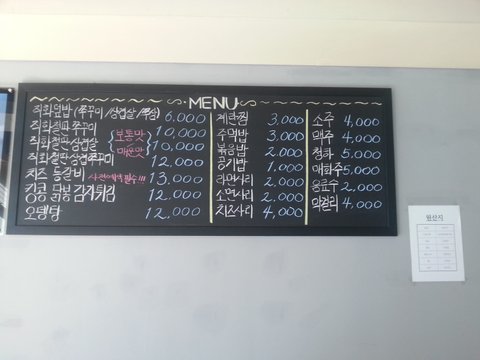 MENU
직화덮밥 (쭈꾸미/삼겹살/쭈삼) 6,000
직화철판 쭈꾸미 10,000
직화철판 삼겹살 10,000
보통맛
매운맛
직화철판 삼겹쭈꾸미 12,000
치즈 등갈비 사전예약필수!!! 13,000
킹콩 곱봉 감자튀김 12,000
오뎅탕 12,000
계란찜 3,000
주먹밥 3,000
볶음밥 2,000
공기밥 1,000
라면사리 2,000
소면사리 2,000
치즈사리 4,000
소주 4,000
맥주 4,000
청하 5,000
매화주 5,000
음료수 2,000
막걸리 4,000
원산지